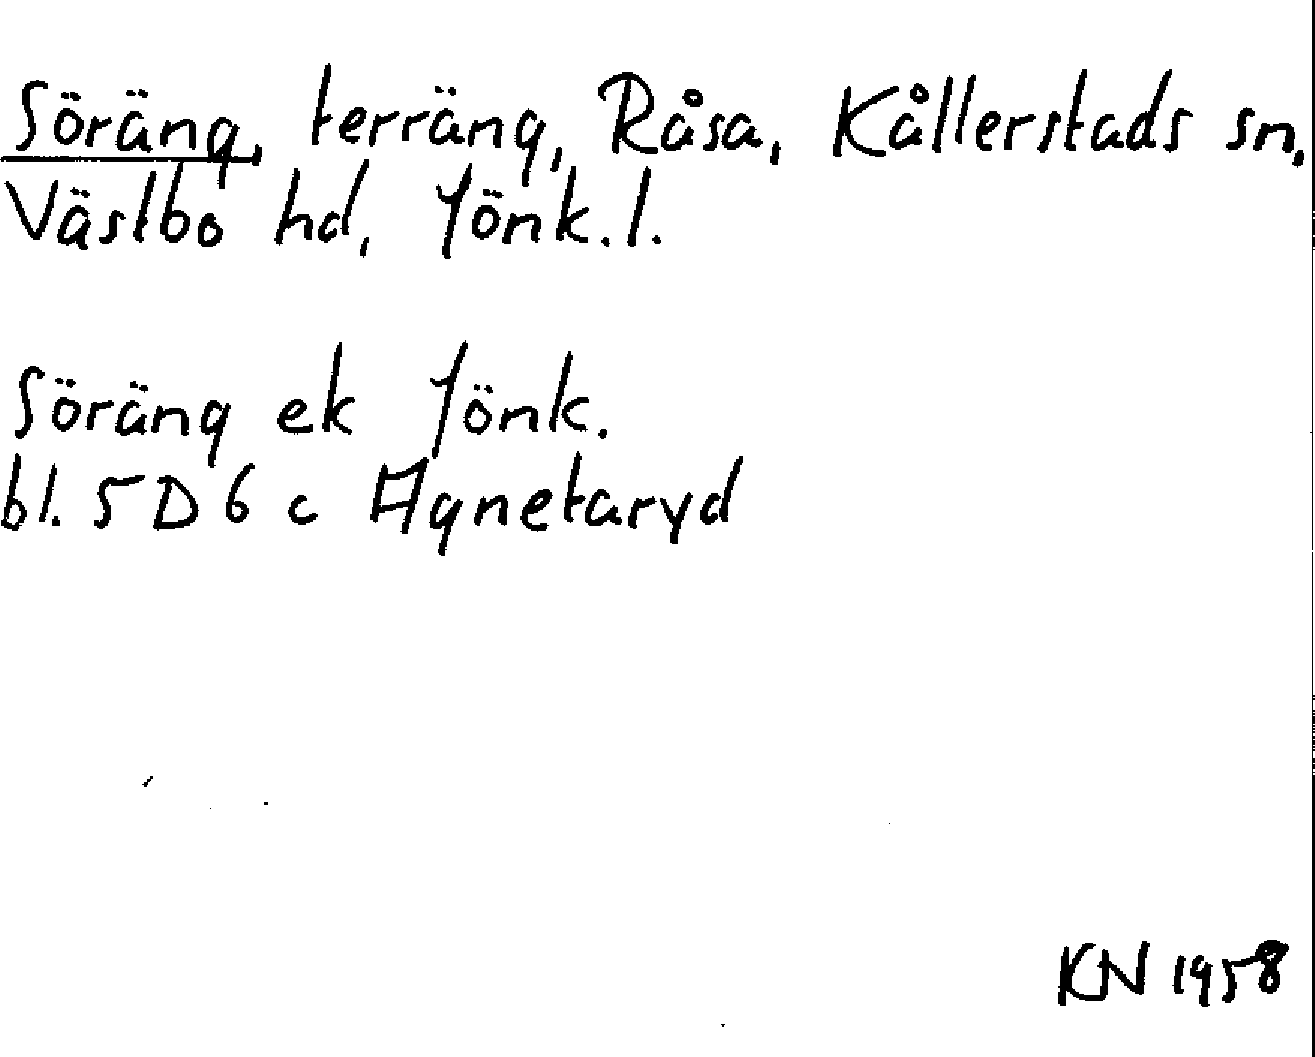 Söräng, terräng, Råsa, Kållerstads sn,
Västbo hd, Jönk.l.
Söräng ek Jönk.
bl. 5 D 6 c Agnetaryd
KN 1958